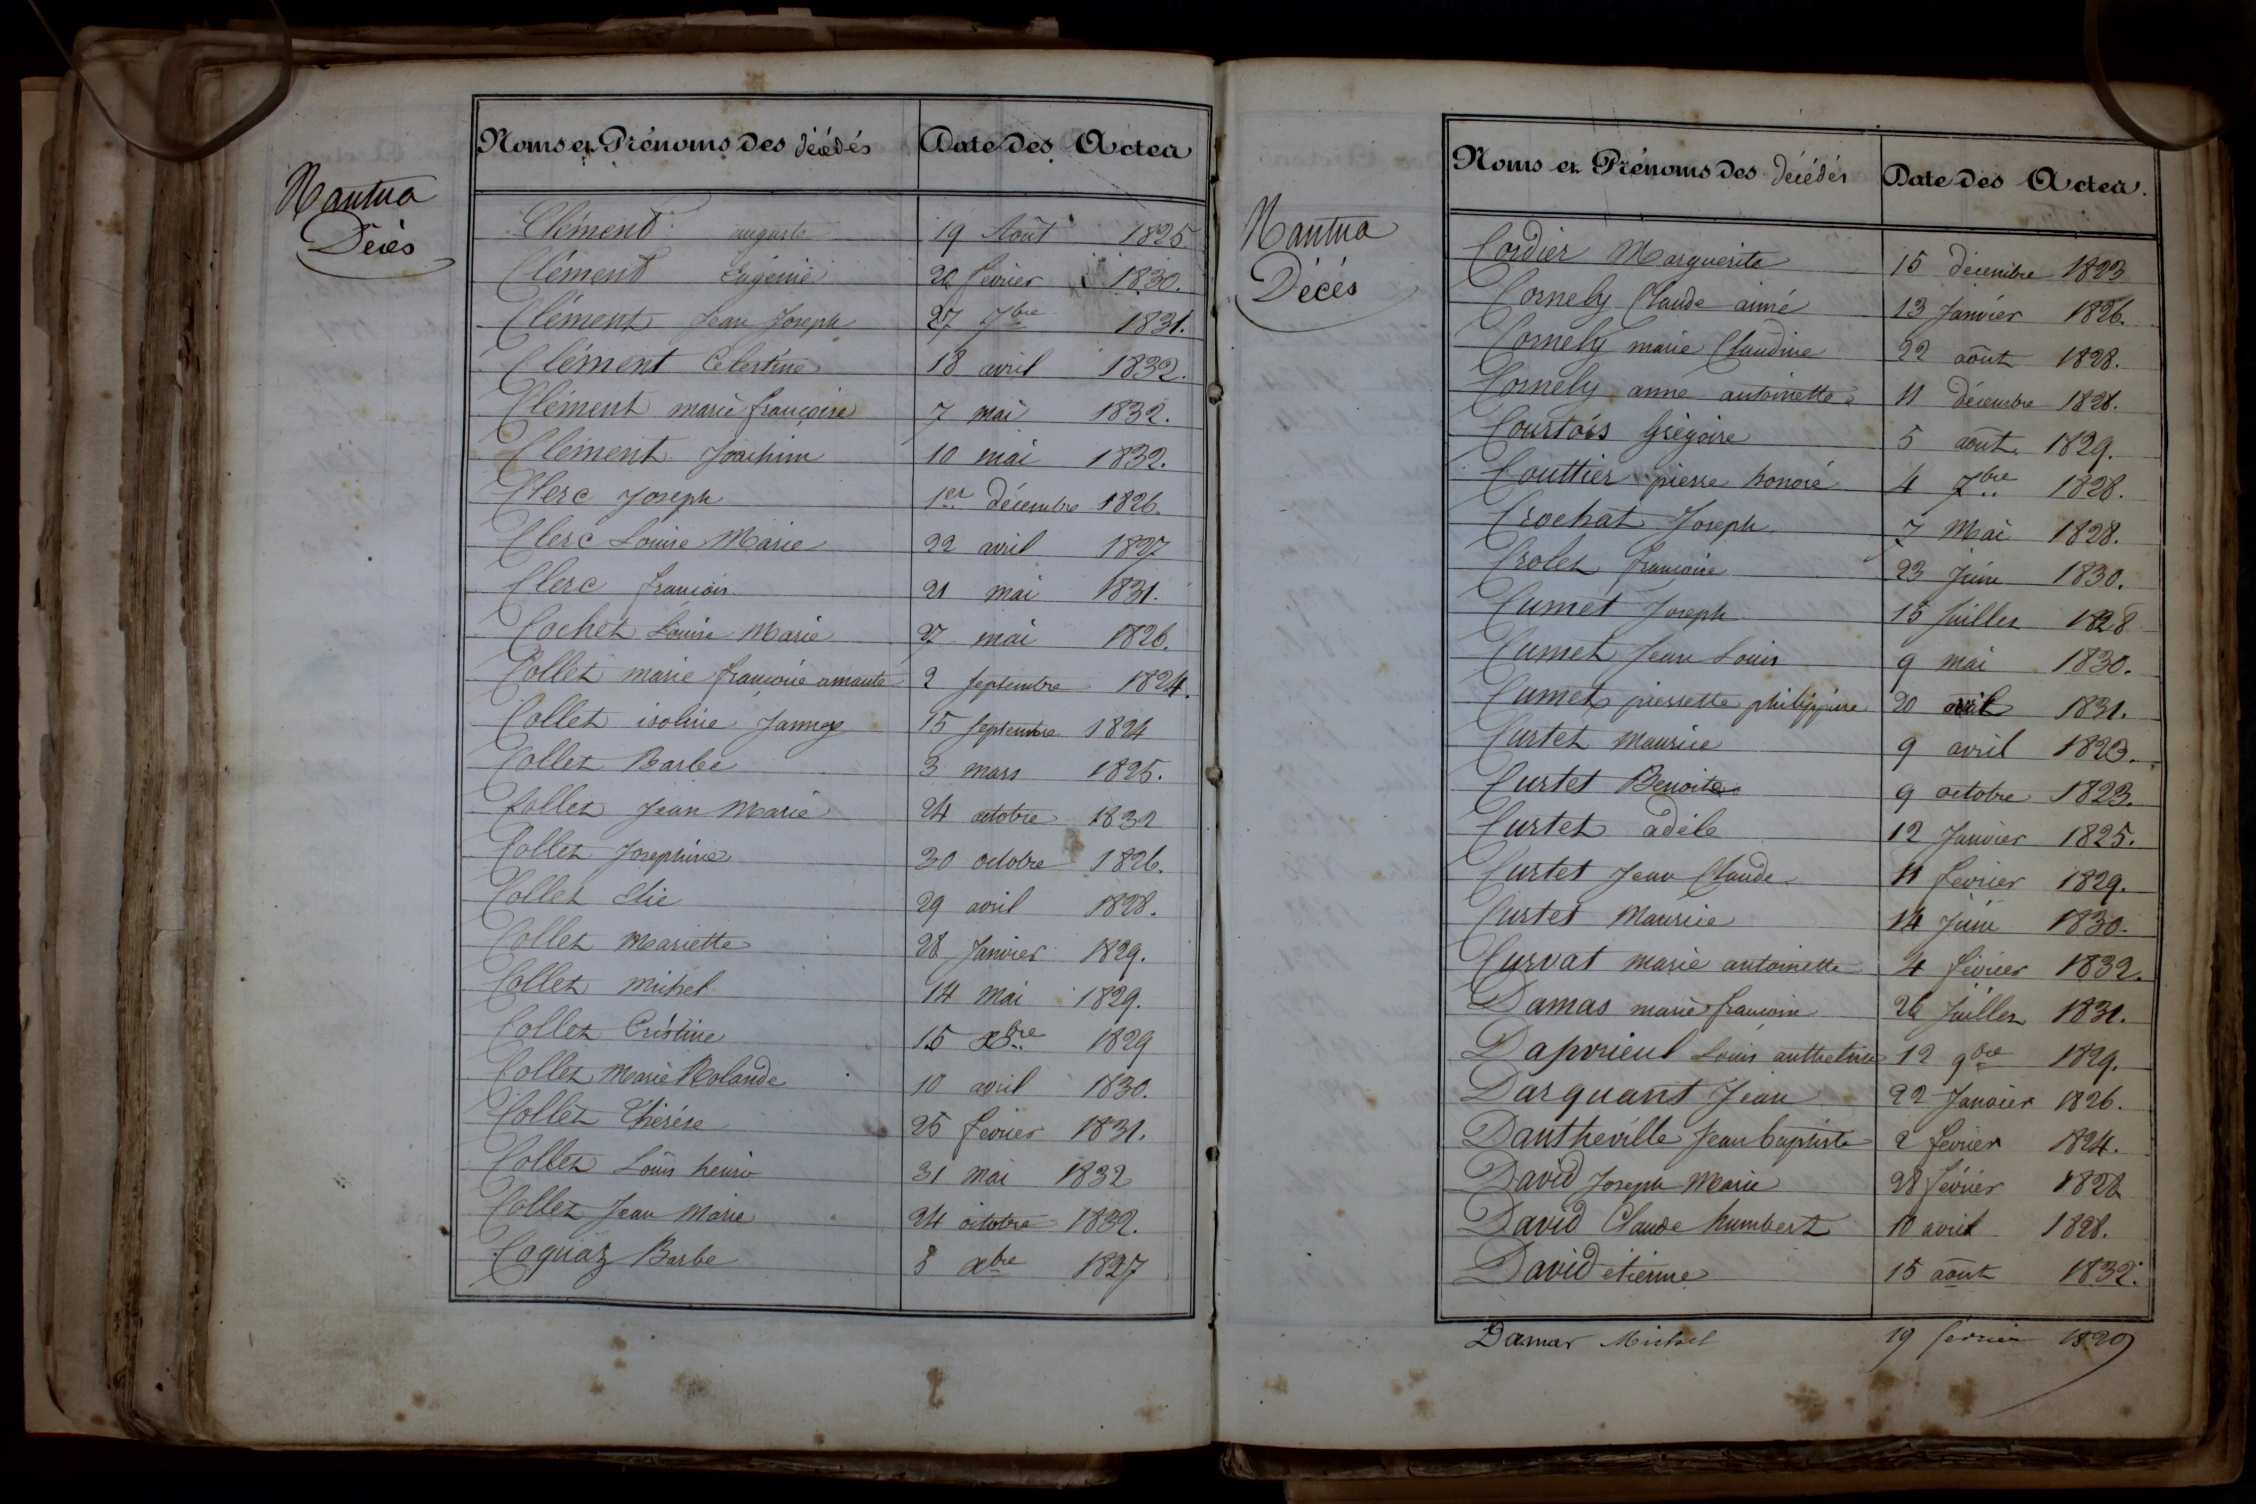 Nantua
Décès
Noms et Prénoms des décédés Date des Actes
Clément auguste 19 Août 1825
Clément Eugénie 20 février 1830.
Clément Jean Joseph 27 7bre 1831.
Clément Célestine 18 avril 1832.
Clément marie françoise 7 mai 1832.
Clément Joachim 10 mai 1832.
Clerc Joseph 1er décembre 1826.
Clerc Louise Marie 22 avril 1827
Clerc françois 21 mai 1831.
Cochet Louise Marie 27 mai 1826.
Collet marie françoise amante 2 septembre 1824.
Collet isoline Jannny 15 septembre 1824
Collet Barbe 3 mars 1825.
Collet Jean Marie 24 octobre 1832
Collet Josephine 30 octobre 1826.
Collet Elie 29 avril 1828.
Collet Mariette 28 Janvier 1829.
Collet michel 14 mai 1829.
Collet Cristine 15 xbre 1829
Collet Marie Rolande 10 avril 1830.
Collet Thérèse 25 février 1831.
Collet Louis henri 31 mai 1832
Collet Jean Marie 24 octobre 1832.
Coquaz Barbe 8 xbre 1827
Nantua
Décés
Noms et Prénoms des décédés Date des Actes.
Cordier Marguerite 15 décembre 1823
Cornely Claude aimé 13 Janvier 1826.
Cornely marie Claudine 22 août 1828.
Cornely anne antoinette 11 décembre 1828.
Courtois Grégoire 5 août 1829.
Couttier pierre honoré 4 7bre 1828.
Crochat Joseph 7 Mai 1828.
Crolet françoise 23 Juin 1830.
Cumet Joseph 15 Juillet 1828
Cumet Jean Louis 9 mai 1830.
Cumet pierrette philippine 20 avril 1831.
Curtet Maurice 9 avril 1823.
Curtet Benoite 9 octobre 1823.
Curtet adéle 12 Janvier 1825.
Curtet Jean Claude 11 février 1829.
Curtet Maurice 14 Juin 1830.
Curvat marie antoinette 4 février 1832.
Damas marie françoise 26 Juillet 1831.
Daprieul Louis anthelme 12 9bre 1829.
Darquant Jean 22 Janvier 1826.
Dantheville Jean baptiste 2 février 1824.
David Joseph Marie 28 février
David Claude humbert 10 avril 1828.
David étienne 15 août 1832.
Damas Michel 19 février 1829